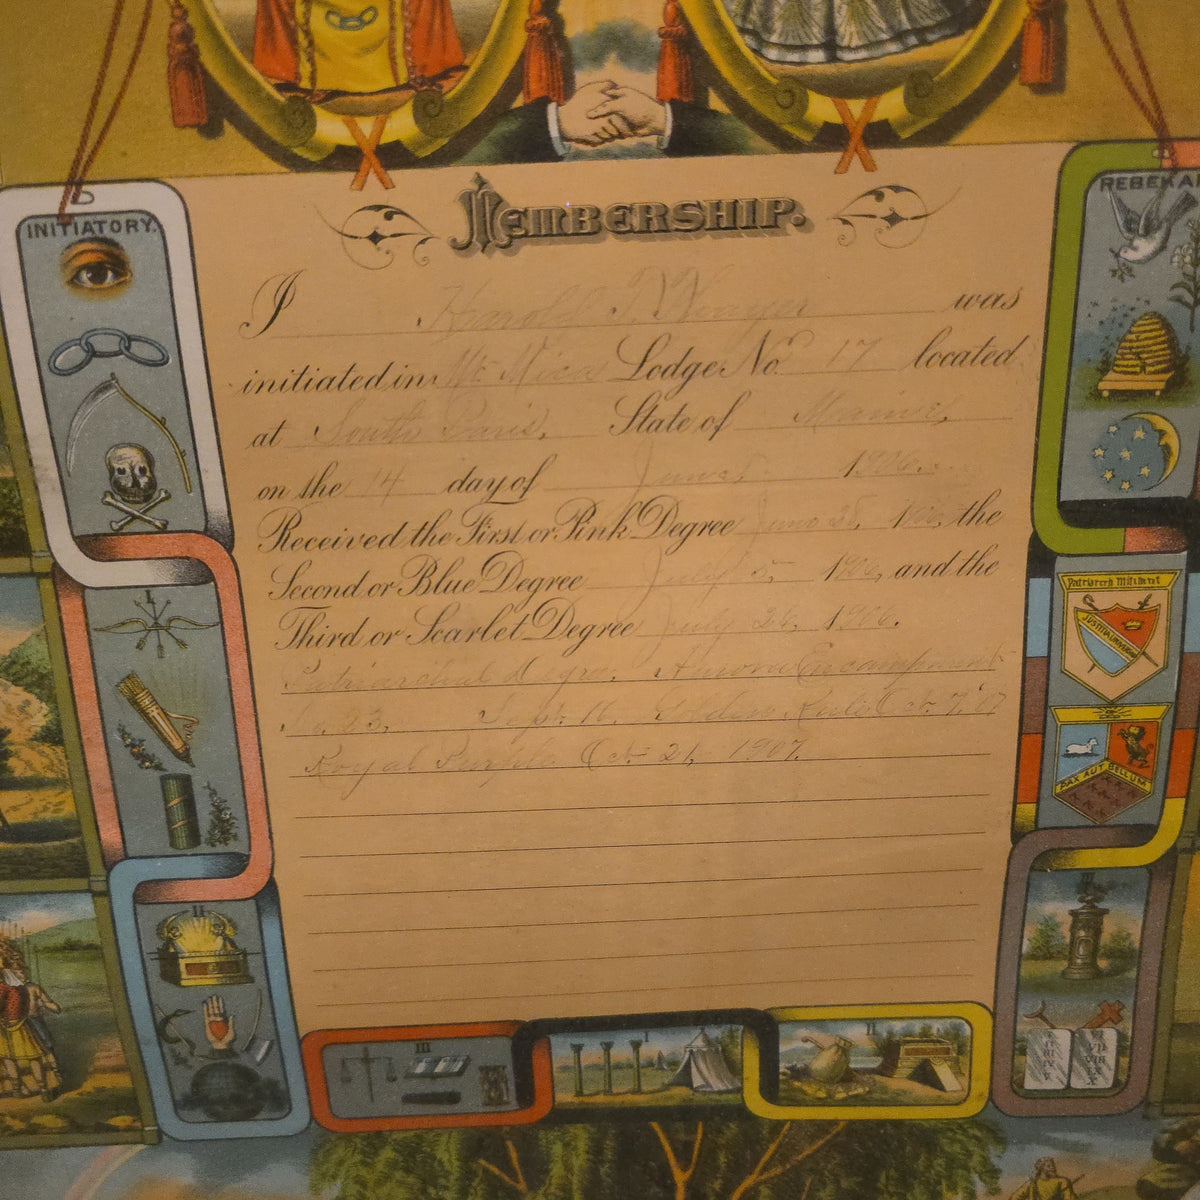 MEMBERSHIP.
INITIATORY.
REBEKA
I Harold T. was
initiated in Mt. Mica Lodge No. 17 located
at South Paris, State of Maine,
on the 14 day of June, 1906.
Received the First or Pink Degree June 28, 1906, the
Second or Blue Degree July 5, 1906, and the
Third or Scarlet Degree July 26, 1906.
Patriarchal Degree. Encampment
No. 23, Sept. 16. Golden Rule Oct. 7, '07
Royal Purple Oct. 21, 1907.
I
Patriarch Militant
JUSTITIA UNIVERSALIS
PAX AUT BELLUM
II
III
III
I
II